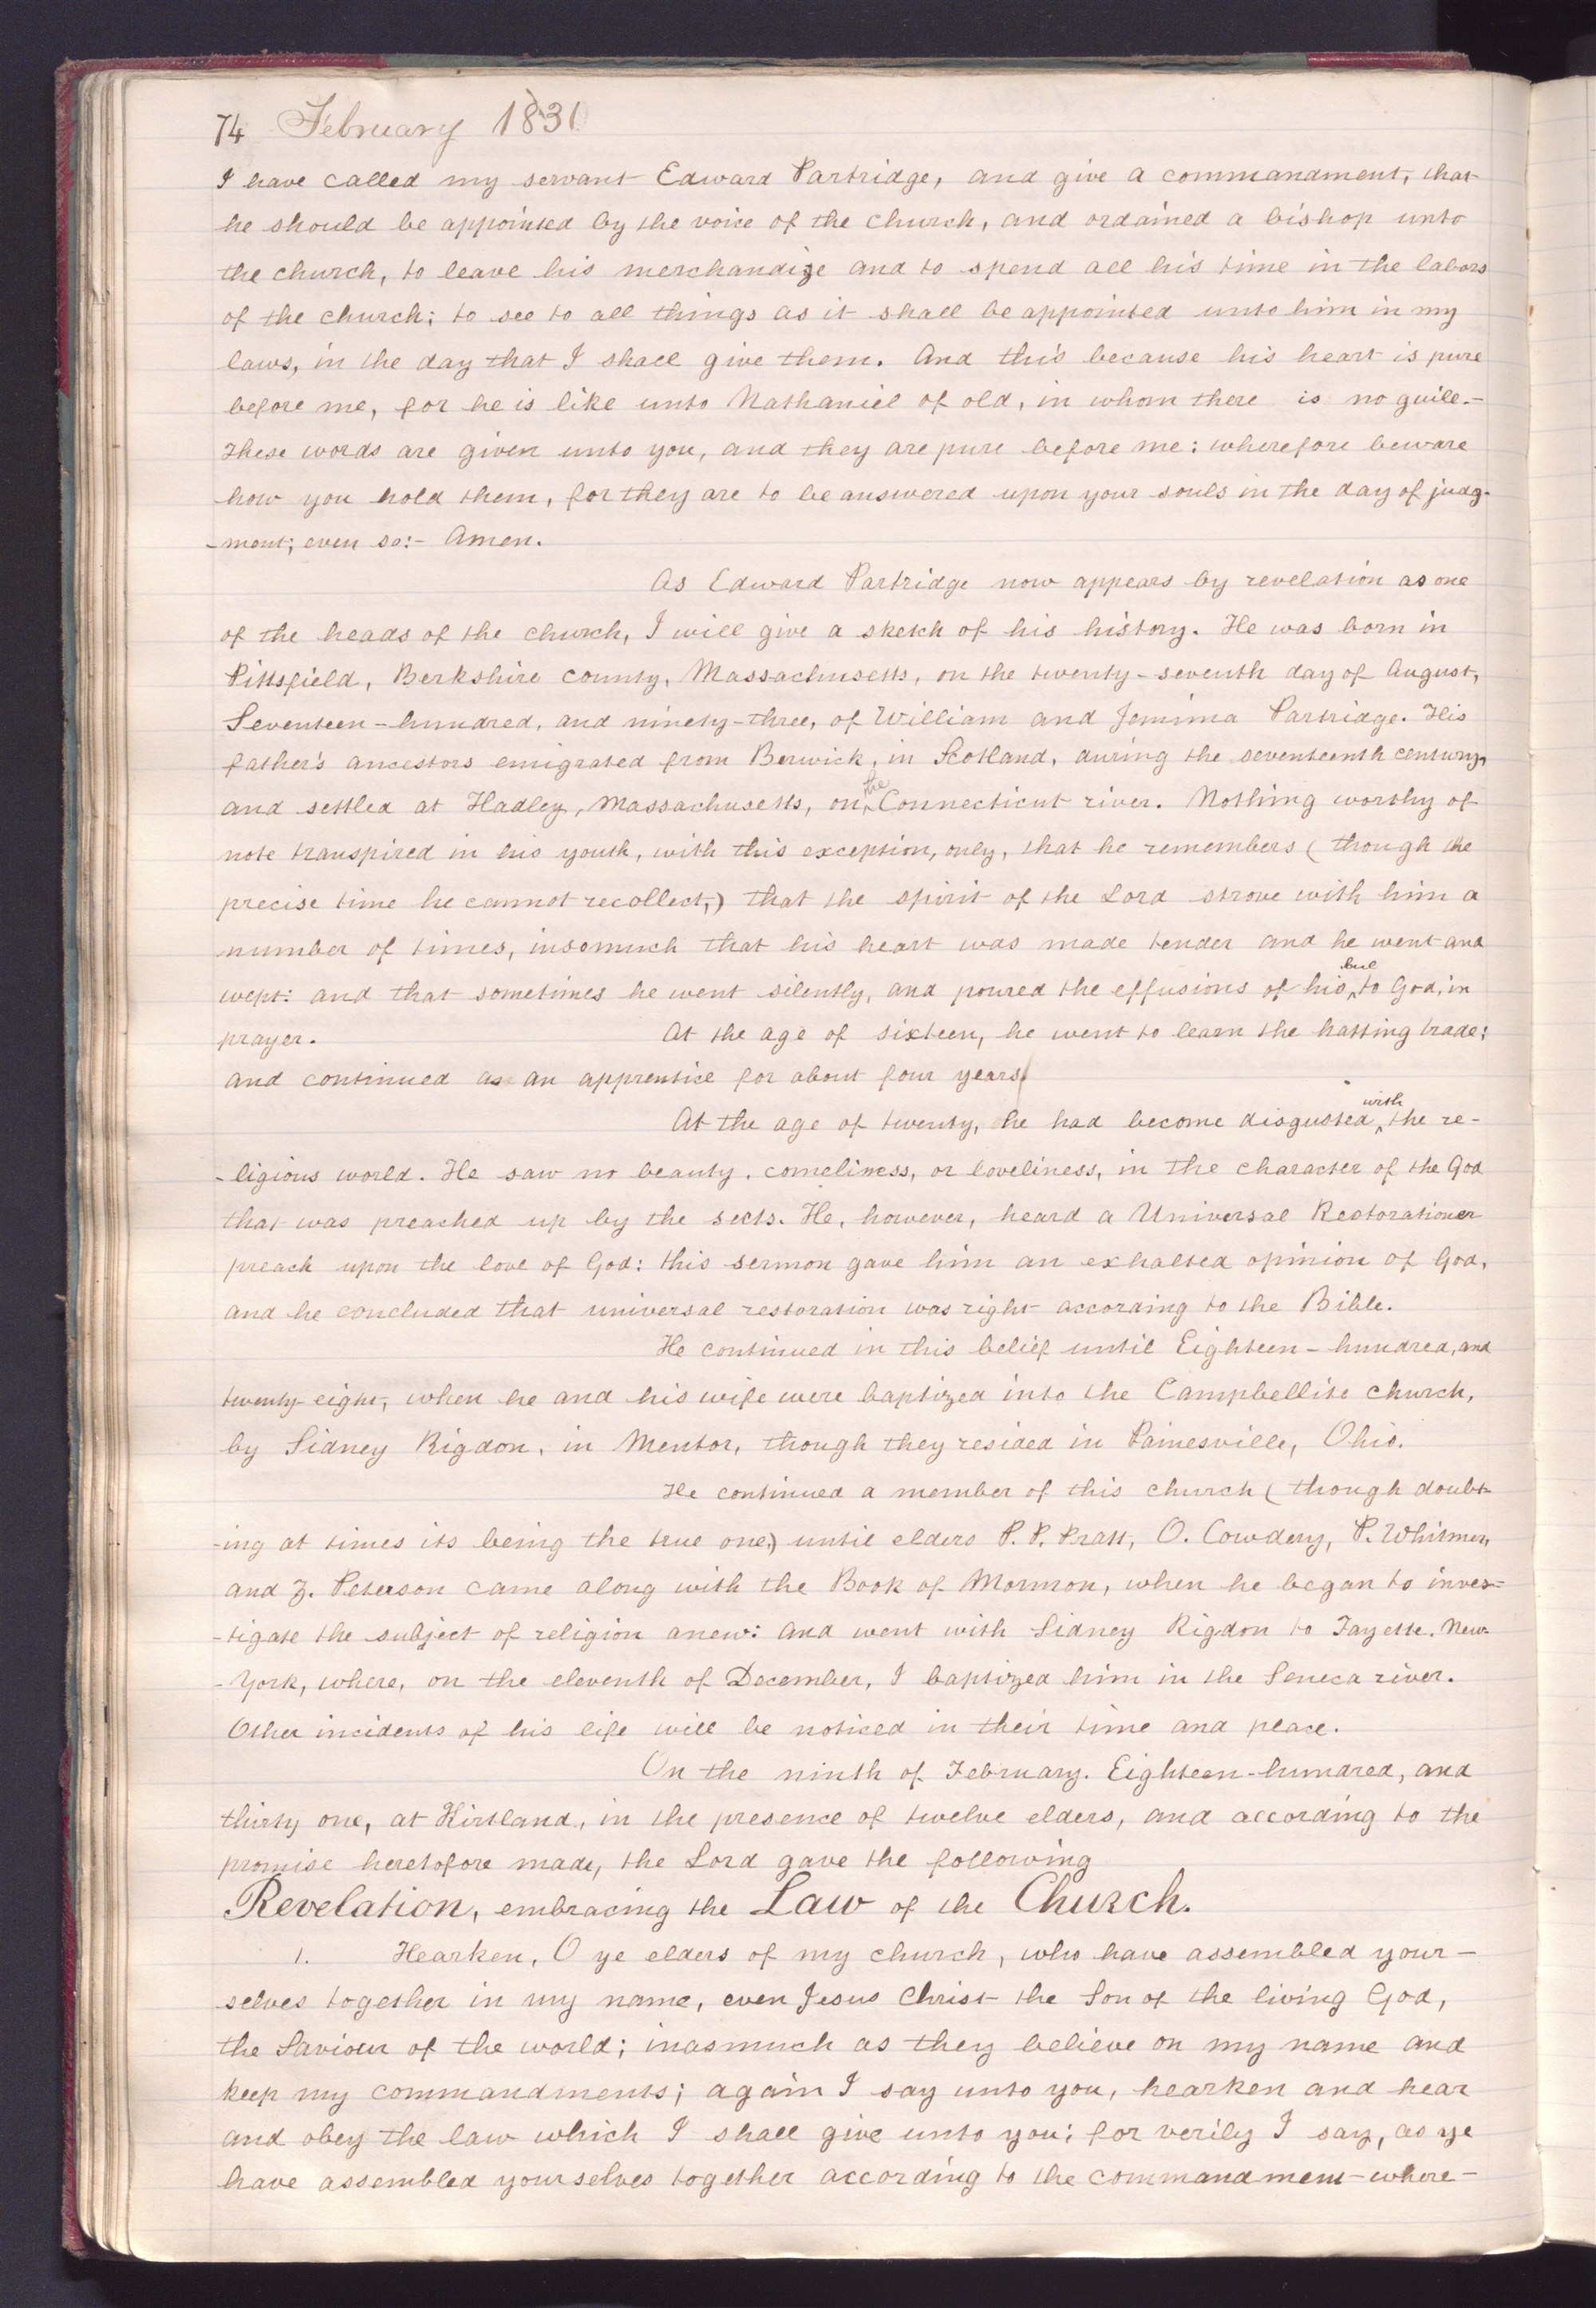 74 February 1831
I have called my servant Edward Partridge, and give a commandment, that
he should be appointed by the voice of the church, and ordained a bishop unto
the church, to leave his merchandize and to spend all his time in the labors
of the church; to see to all things as it shall be appointed unto him in my
laws, in the day that I shall give them. And this because his heart is pure
before me, for he is like unto Nathaniel of old, in whom there is no guile.-
These words are given unto you, and they are pure before me: wherefore beware
how you hold them, for they are to be answered upon your souls in the day of judg-
-ment; even so:- Amen.
As Edward Partridge now appears by revelation as one
of the heads of the church, I will give a sketch of his history. He was born in
Pittsfield, Berkshire county, Massachusetts, on the twenty-seventh day of August,
Seventeen-hundred, and ninety-three, of William and Jemima Partridge. His
father's ancestors emigrated from Berwick, in Scotland, during the seventeenth century,
and settled at Hadley, Massachusetts, on the Connecticut river. Nothing worthy of
note transpired in his youth, with this exception, only, that he remembers (though the
precise time he cannot recollect,) that the spirit of the Lord strove with him a
number of times, insomuch that his heart was made tender and he went and
wept: and that sometimes he went silently, and poured the effusions of his to God, in
prayer. At the age of sixteen, he went to learn the hatting trade;
and continued as an apprentice for about four years.
At the age of twenty, he had become disgusted with the re-
-ligious world. He saw no beauty, comeliness, or loveliness, in the character of the God
that was preached up by the sects. He, however, heard a Universal Restorationer
preach upon the love of God: this sermon gave him an exhalted opinion of God,
and he concluded that universal restoration was right according to the Bible.
He continued in this belief until Eighteen-hundred, and
twenty-eight, when he and his wife were baptized into the Campbellite church,
by Sidney Rigdon, in Mentor, though they resided in Painesville, Ohio.
He continued a member of this church (though doubt-
-ing at times its being the true one,) until elders P. P. Pratt, O. Cowdery, P. Whitmer,
and Z. Peterson came along with the Book of Mormon, when he began to inves-
-tigate the subject of religion anew: and went with Sidney Rigdon to Fayette, New-
-York, where, on the eleventh of December, I baptized him in the Seneca river.
Other incidents of his life will be noticed in their time and place.
On the ninth of February, Eighteen-hundred, and
thirty one, at Kirtland, in the presence of twelve elders, and according to the
promise heretofore made, the Lord gave the following
Revelation, embracing the Law of the Church.
1. Hearken, O ye elders of my church, who have assembled your-
selves together in my name, even Jesus Christ the Son of the living God,
the Saviour of the world; inasmuch as they believe on my name and
keep my commandments; again I say unto you, hearken and hear
and obey the law which I shall give unto you; for verily I say, as ye
have assembled yourselves together according to the commandment where-